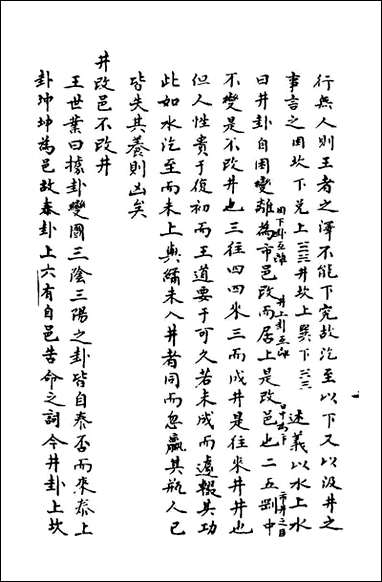 行無人則王者之澤不能下究故汔至以下又以汲井之
事言之困坎下兌上☱☵井坎上巽下☵☴述義以水上水
曰井卦自困變離為市邑改而居上是改邑也二五剛中
不變是不改井也三往四四來三而成井是往來井井也
但人性貴于復初而王道要于可久若未成而遽輟其功
此如水汔至而未上與繘未入井者同而忽羸其瓶人已
皆失其養則凶矣
井改邑不改井
王世業曰據卦變圖三陰三陽之卦皆自泰否而來泰上
卦坤坤為邑故泰卦上六有自邑告命之詞今井卦上坎